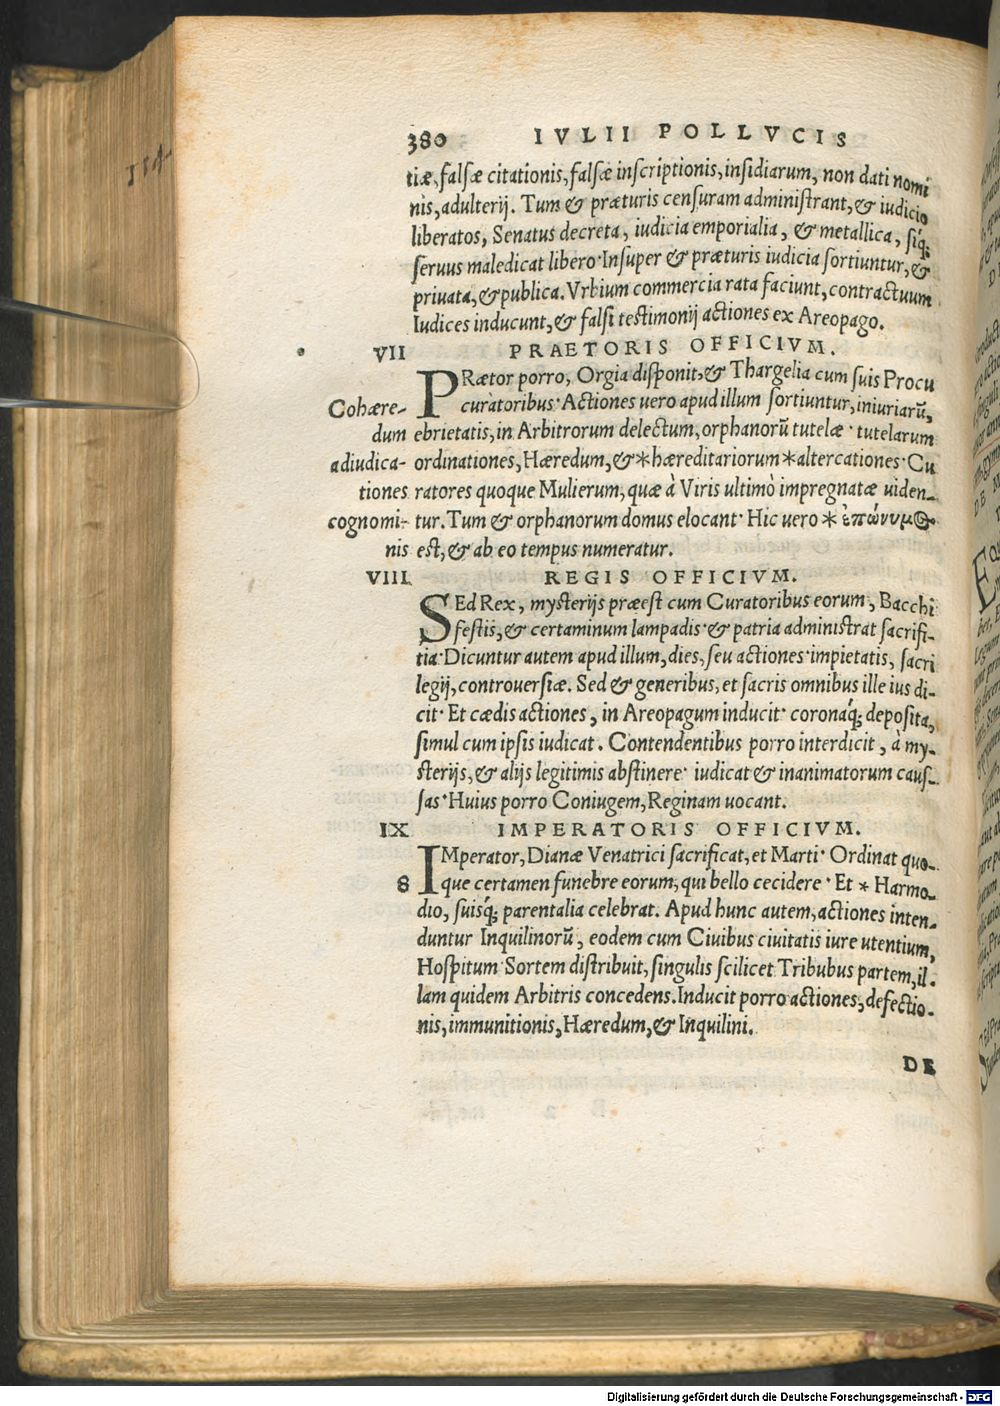 380 IVLII POLLVCIS
tiæ, falsæ citationis, falsæ inscriptionis, insidiarum, non dati nomi
nis, adulterij. Tum & præturis censuram administrant, & iudicio
liberatos, Senatus decreta, iudicia emporialia, & metallica, siq́;
seruus maledicat libero· Insuper & præturis iudicia sortiuntur, &
priuata, & publica. Vrbium commercia rata faciunt, contractuum
Iudices inducunt, & falsi testimonij actiones ex Areopago.
VII PRAETORIS OFFICIVM.
PRætor porro, Orgia disponit, & Thargelia cum suis Procu
Cohære- curatoribus· Actiones uero apud illum sortiuntur, iniuriarũ,
dum ebrietatis, in Arbitrorum delectum, orphanorũ tutelæ · tutelarum
adiudica- ordinationes, Hæredum, & * hæreditariorum * altercationes· Cu
tiones ratores quoque Mulierum, quæ à Viris ultimò impregnatæ uiden-
cognomi- tur. Tum & orphanorum domus elocant· Hic uero * ἐπώνυμος
nis est, & ab eo tempus numeratur.
VIII REGIS OFFICIVM.
SEd Rex, mysterijs præest cum Curatoribus eorum, Bacchi
festis, & certaminum lampadis· & patria administrat sacrifi-
tia· Dicuntur autem apud illum, dies, seu actiones· impietatis, sacri
legij, controuersiæ. Sed & generibus, et sacris omnibus ille ius di-
cit· Et cædis actiones, in Areopagum inducit· coronaq́; deposita,
simul cum ipsis iudicat. Contendentibus porro interdicit, à my-
sterijs, & alijs legitimis abstinere· iudicat & inanimatorum caus-
sas· Huius porro Coniugem, Reginam uocant.
IX IMPERATORIS OFFICIVM.
IMperator, Dianæ Venatrici sacrificat, et Marti· Ordinat quo-
8 que certamen funebre eorum, qui bello cecidere· Et * Harmo-
dio, suisq́; parentalia celebrat. Apud hunc autem, actiones inten-
duntur Inquilinorũ, eodem cum Ciuibus ciuitatis iure utentium,
Hospitum· Sortem distribuit, singulis scilicet Tribubus partem, il-
lam quidem Arbitris concedens. Inducit porro actiones, defectio-
nis, immunitionis, Hæredum, & Inquilini.
DE
Digitalisierung gefördert durch die Deutsche Forschungsgemeinschaft - DFG